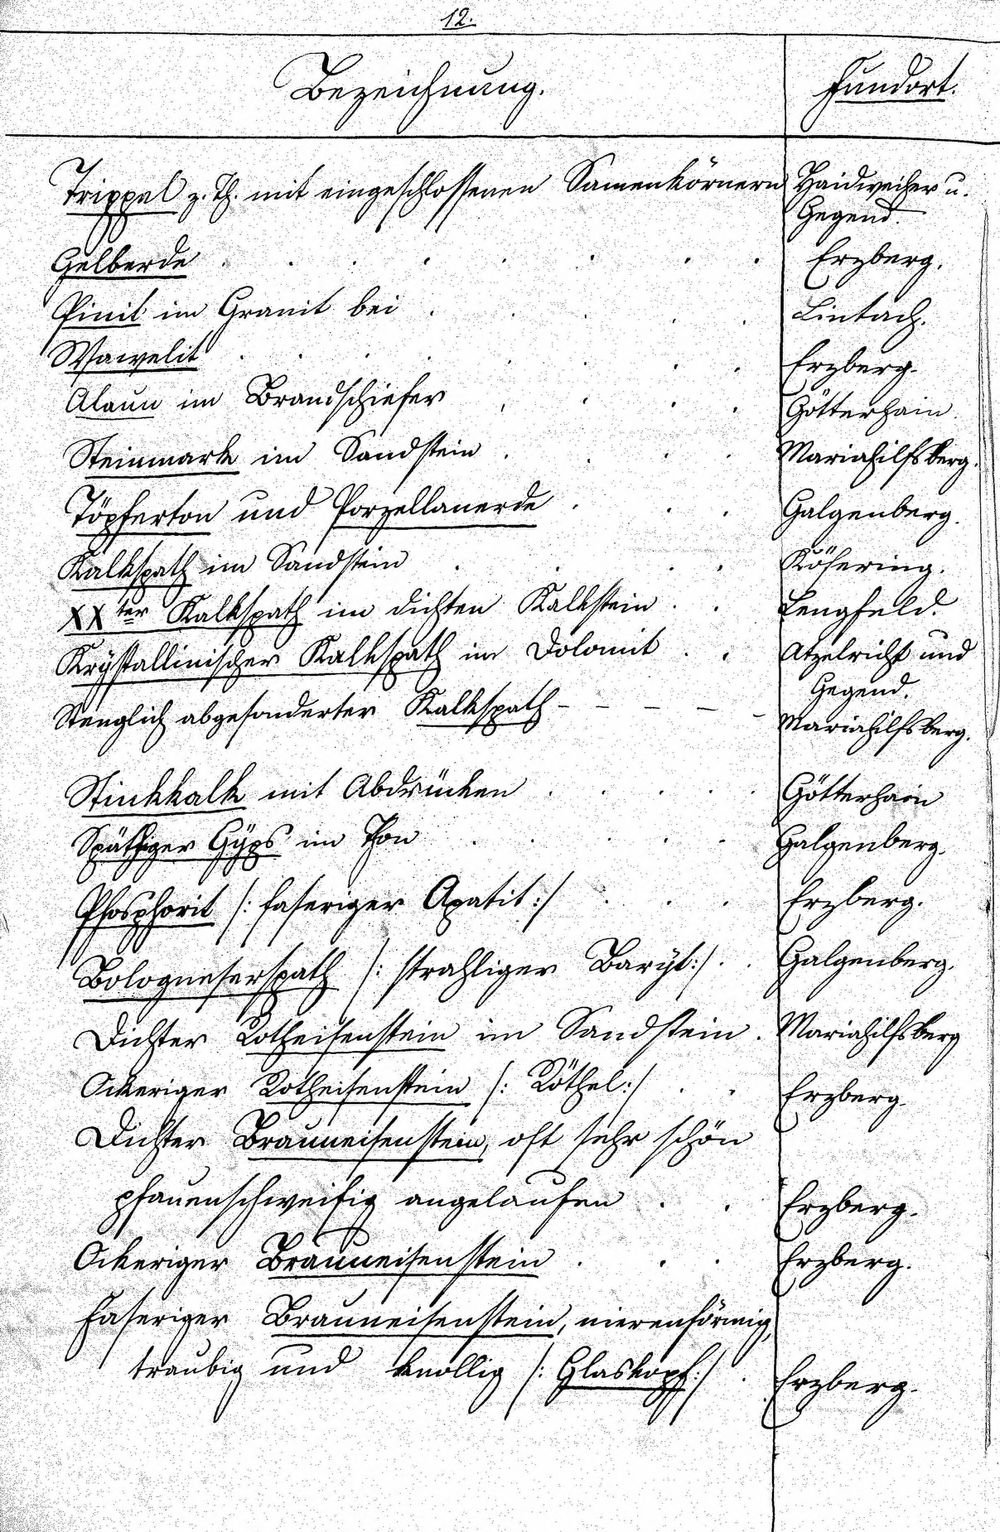 12.
Bezeichnung. Fundort.
Trippel z. Th. mit eingeschlossenen Samenkörnern Haidweiher u.
Gegend.
Gelberde . . . . . . . . Erzberg.
Pinit im Granit bei . . . . Lintach.
Wawelit . . . . . . . Erzberg.
Alaun im Brandschiefer . . . . Götterhain.
Steinmark im Sandstein . . . . Mariahilfsberg.
Töpferton und Porzellanerde . . . Galgenberg.
Kalkspath im Sandstein . . . . Köfering.
XXter Kalkspath im dichten Kalkstein . . Lengfeld.
Krystallinischer Kalkspath im Dolomit . . Atzelricht und
Gegend.
Stenglich abgesonderter Kalkspath – – – – – Mariahilfsberg.
Stinkkalk mit Abdrücken . . . . . Götterhain
Späthiger Gÿps im Thon . . . . . Galgenberg.
Phosphorit /: faseriger Apatit :/ . . . Erzberg.
Bologneserspath /: strahliger Barÿt :/ . . Galgenberg.
Dichter Rotheisenstein im Sandstein . Mariahilfsberg
Ockeriger Rotheisenstein /: Röthel :/ . . Erzberg.
Dichter Brauneisenstein, oft sehr schön
pfauenschweifig angelaufen . . Erzberg.
Ockeriger Brauneisenstein . . . Erzberg.
Faseriger Brauneisenstein, nierenförmig,
traubig und knollig /: Glaskopf :/ . Erzberg.